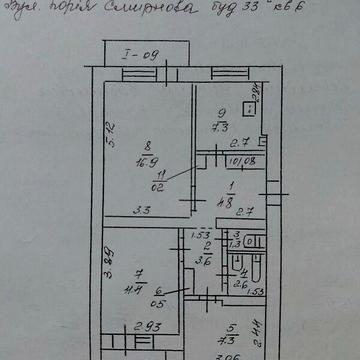 Вул. Юрія Смирнова буд 33 кв 6
I-09
5.12
8
16.9
9
7.3
2.84
2.7
11
02
10/0.8
1
4.8
3.3
2.7
1.53
2
3.6
3
1.3
3.89
7
11.4
6
05
4
2.6
1.53
2.93
5
7.3
2.44
3.06